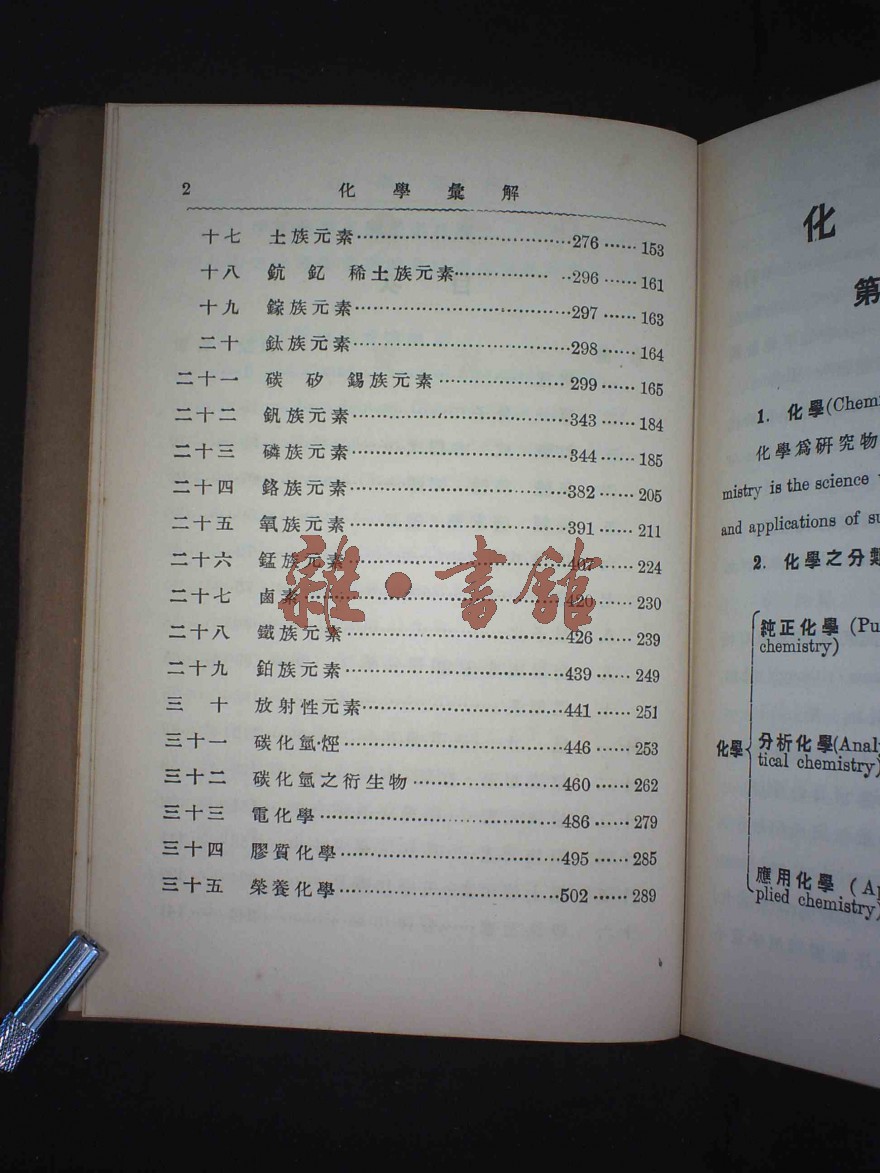 2 化學彙解
十七 土族元素 276 153
十八 鈧 釔 稀土族元素 296 161
十九 鎵族元素 297 163
二十 鈦族元素 298 164
二十一 碳 矽 錫族元素 299 165
二十二 釩族元素 343 184
二十三 磷族元素 344 185
二十四 鉻族元素 382 205
二十五 氧族元素 391 211
二十六 錳族元素 407 224
二十七 鹵素 420 230
二十八 鐵族元素 426 239
二十九 鉑族元素 439 249
三十 放射性元素 441 251
三十一 碳化氫·烴 446 253
三十二 碳化氫之衍生物 460 262
三十三 電化學 486 279
三十四 膠質化學 495 285
三十五 榮養化學 502 289
雜·書館
化
第
1. 化學(Chemi
化學爲研究物
mistry is the science
and applications of su
2. 化學之分類
化學
純正化學 (Pu
chemistry)
分析化學(Analy
tical chemistry)
應用化學 (Ap
plied chemistry)